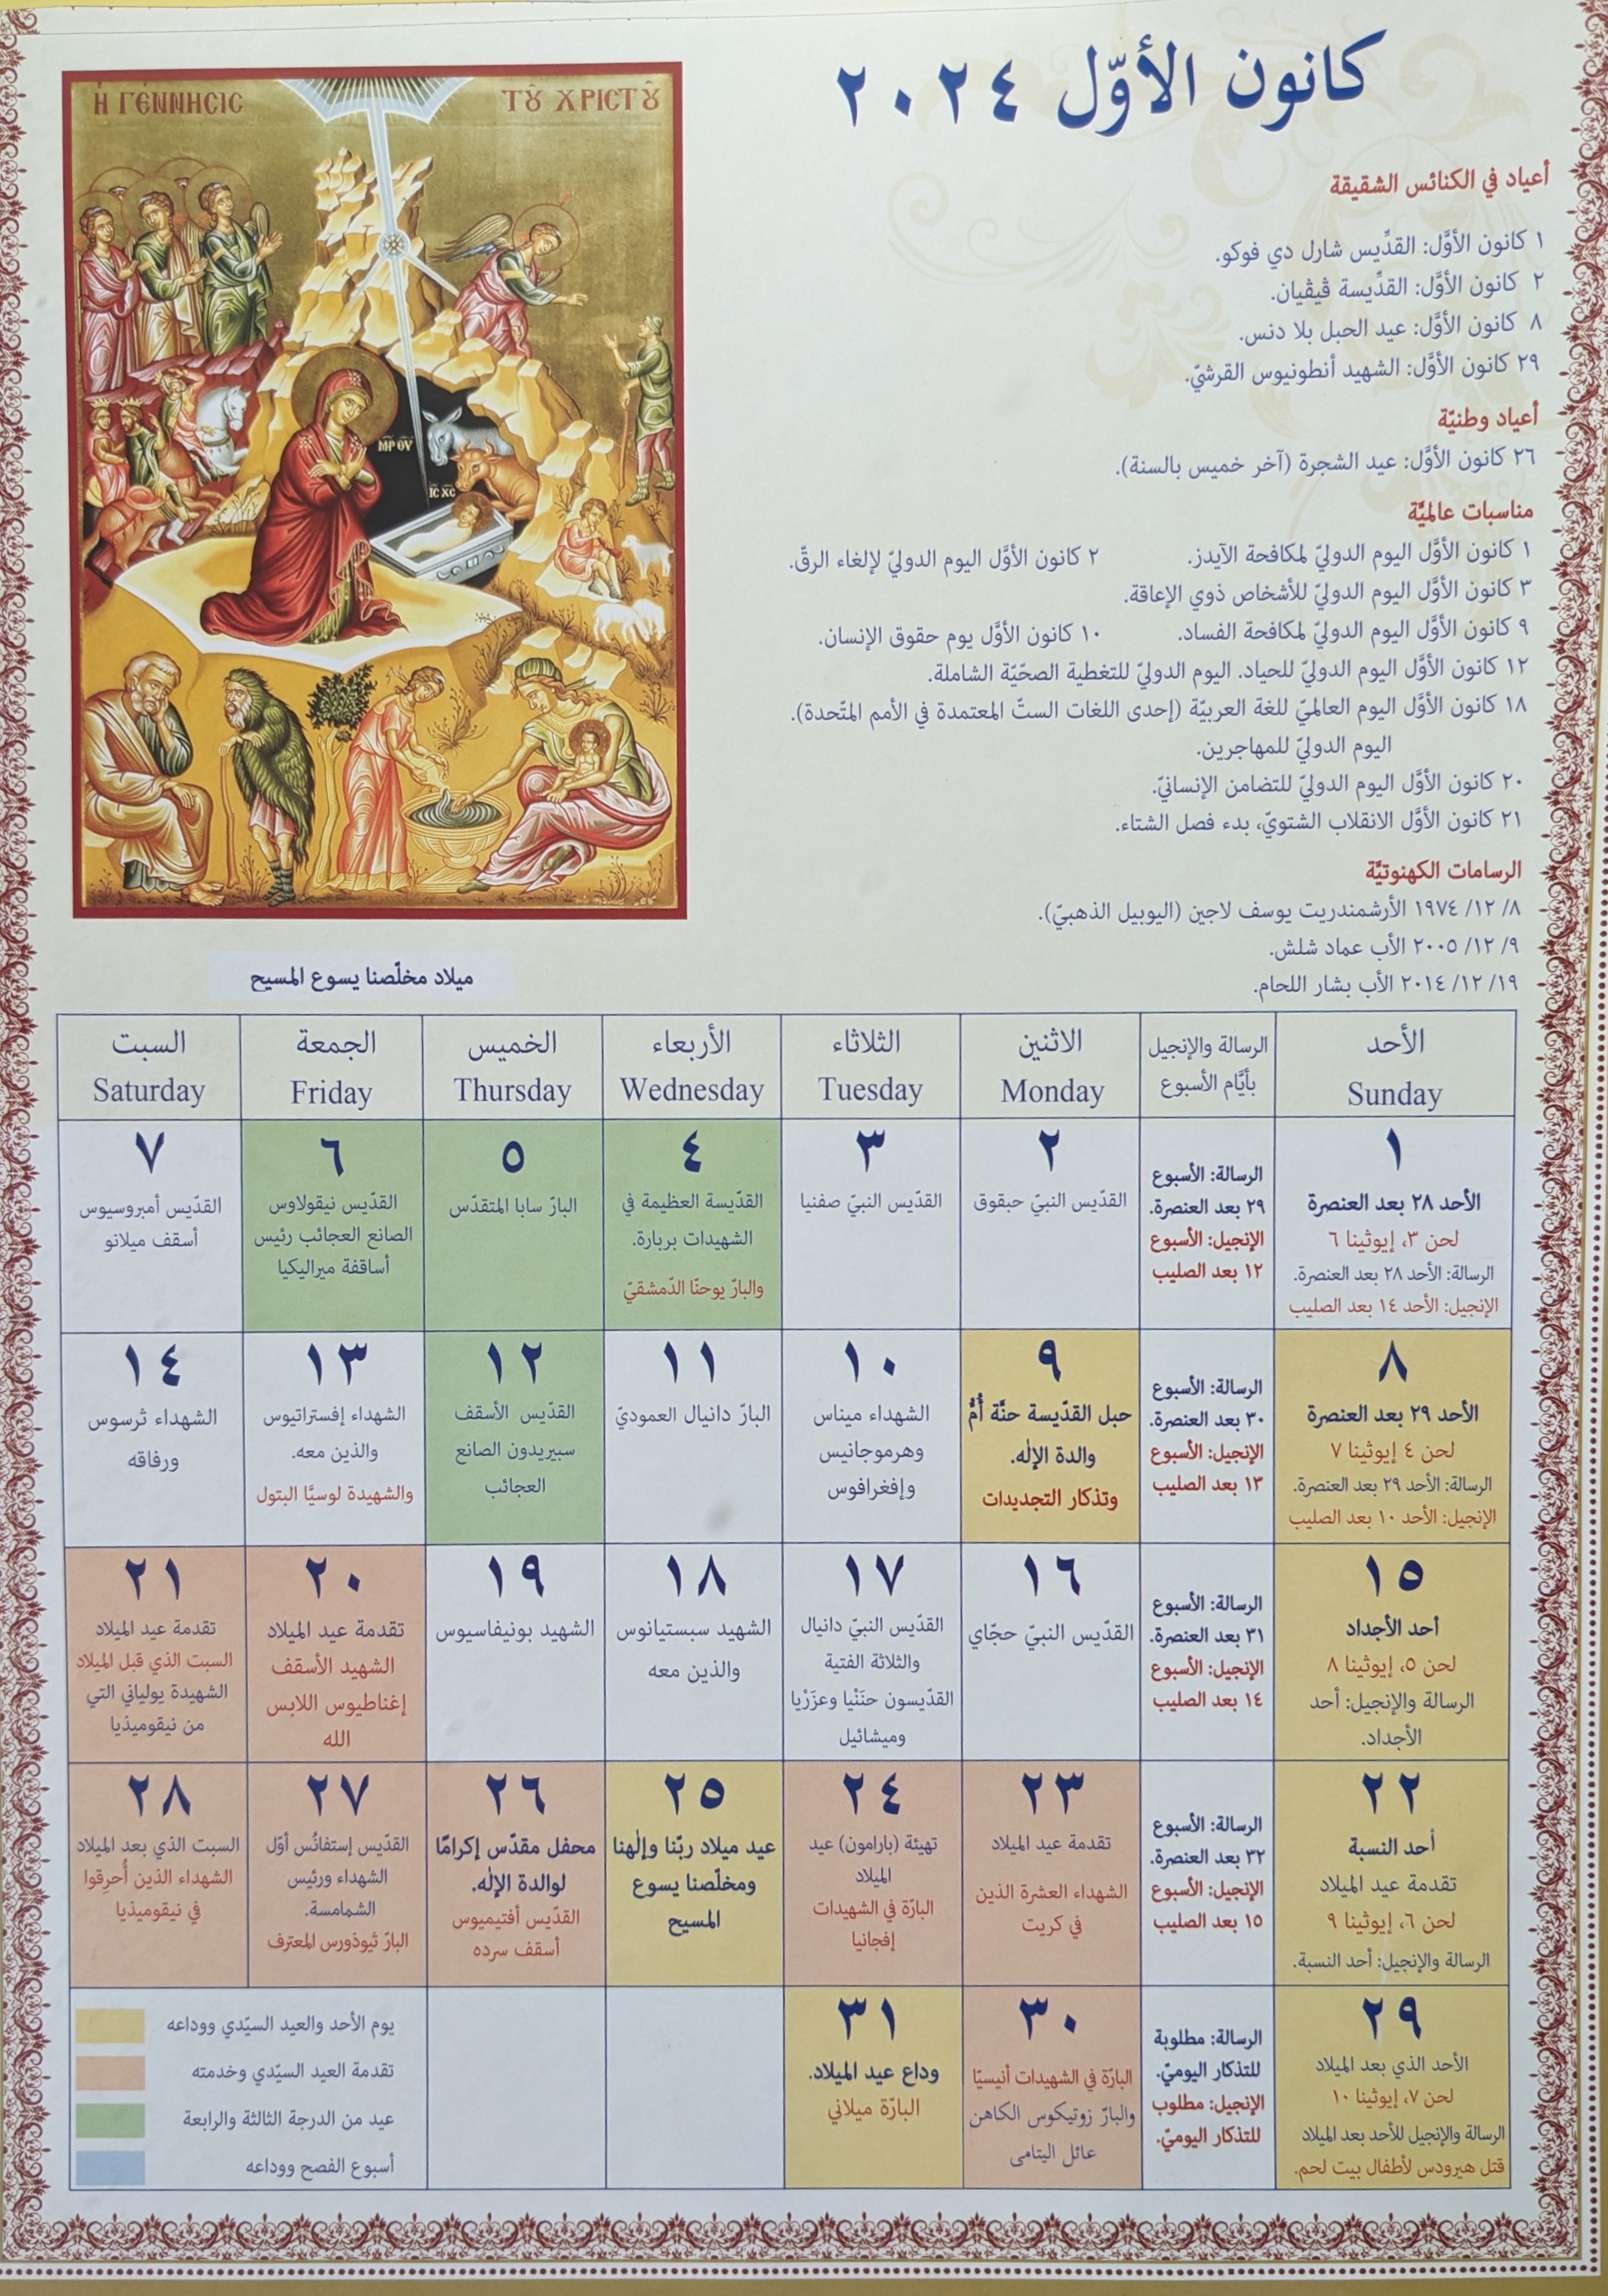 كانون الأوّل ٢٠٢٤
Ἡ ΓΈΝΝΗCΙC ΤȢ͂ ΧΡΙCΤȢ͂
ΜΡ ΘΥ
IC XC
أعياد في الكنائس الشقيقة
١ كانون الأوَّل: القدِّيس شارل دي فوكو.
٢ كانون الأوَّل: القدِّيسة ڤيڤيان.
٨ كانون الأوَّل: عيد الحبل بلا دنس.
٢٩ كانون الأوَّل: الشهيد أنطونيوس القرشيّ.
أعياد وطنيّة
٢٦ كانون الأوَّل: عيد الشجرة (آخر خميس بالسنة).
مناسبات عالميَّة
١ كانون الأوَّل اليوم الدوليّ لمكافحة الآيدز. ٢ كانون الأوَّل اليوم الدوليّ لإلغاء الرقّ.
٣ كانون الأوَّل اليوم الدوليّ للأشخاص ذوي الإعاقة.
٩ كانون الأوَّل اليوم الدوليّ لمكافحة الفساد. ١٠ كانون الأوَّل يوم حقوق الإنسان.
١٢ كانون الأوَّل اليوم الدوليّ للحياد. اليوم الدوليّ للتغطية الصحّيّة الشاملة.
١٨ كانون الأوَّل اليوم العالميّ للغة العربيّة (إحدى اللغات الستّ المعتمدة في الأمم المتّحدة).
اليوم الدوليّ للمهاجرين.
٢٠ كانون الأوَّل اليوم الدوليّ للتضامن الإنسانيّ.
٢١ كانون الأوَّل الانقلاب الشتويّ، بدء فصل الشتاء.
الرسامات الكهنوتيَّة
٨/ ١٢/ ١٩٧٤ الأرشمندريت يوسف لاجين (اليوبيل الذهبيّ).
٩/ ١٢/ ٢٠٠٥ الأب عماد شلش.
١٩/ ١٢/ ٢٠١٤ الأب بشار اللحام.
ميلاد مخلّصنا يسوع المسيح
الأحد
Sunday
الرسالة والإنجيل
بأيَّام الأسبوع
الاثنين
Monday
الثلاثاء
Tuesday
الأربعاء
Wednesday
الخميس
Thursday
الجمعة
Friday
السبت
Saturday
١
الأحد ٢٨ بعد العنصرة
لحن ٣، إيوثينا ٦
الرسالة: الأحد ٢٨ بعد العنصرة.
الإنجيل: الأحد ١٤ بعد الصليب
الرسالة: الأسبوع
٢٩ بعد العنصرة.
الإنجيل: الأسبوع
١٢ بعد الصليب
٢
القدّيس النبيّ حبقوق
٣
القدّيس النبيّ صفنيا
٤
القدّيسة العظيمة في
الشهيدات بربارة.
والبارّ يوحنّا الدّمشقيّ
٥
البارّ سابا المتقدّس
٦
القدّيس نيقولاوس
الصانع العجائب رئيس
أساقفة ميراليكيا
٧
القدّيس أمبروسيوس
أسقف ميلانو
٨
الأحد ٢٩ بعد العنصرة
لحن ٤ إيوثينا ٧
الرسالة: الأحد ٢٩ بعد العنصرة.
الإنجيل: الأحد ١٠ بعد الصليب
الرسالة: الأسبوع
٣٠ بعد العنصرة.
الإنجيل: الأسبوع
١٣ بعد الصليب
٩
حبل القدّيسة حنَّة أُمُّ
والدة الإلٰه.
وتذكار التجديدات
١٠
الشهداء ميناس
وهرموجانيس
وإفغرافوس
١١
البارّ دانيال العموديّ
١٢
القدّيس الأسقف
سبيريدون الصانع
العجائب
١٣
الشهداء إفستراتيوس
والذين معه.
والشهيدة لوسيَّا البتول
١٤
الشهداء ثرسوس
ورفاقه
١٥
أحد الأجداد
لحن ٥، إيوثينا ٨
الرسالة والإنجيل: أحد
الأجداد.
الرسالة: الأسبوع
٣١ بعد العنصرة.
الإنجيل: الأسبوع
١٤ بعد الصليب
١٦
القدّيس النبيّ حجّاي
١٧
القدّيس النبيّ دانيال
والثلاثة الفتية
القدّيسون حنَنْيا وعزَرْيا
وميشائيل
١٨
الشهيد سبستيانوس
والذين معه
١٩
الشهيد بونيفاسيوس
٢٠
تقدمة عيد الميلاد
الشهيد الأسقف
إغناطيوس اللابس
الله
٢١
تقدمة عيد الميلاد
السبت الذي قبل الميلاد
الشهيدة يولياني التي
من نيقوميذيا
٢٢
أحد النسبة
تقدمة عيد الميلاد
لحن ٦، إيوثينا ٩
الرسالة والإنجيل: أحد النسبة.
الرسالة: الأسبوع
٣٢ بعد العنصرة.
الإنجيل: الأسبوع
١٥ بعد الصليب
٢٣
تقدمة عيد الميلاد
الشهداء العشرة الذين
في كريت
٢٤
تهيئة (بارامون) عيد
الميلاد
البارّة في الشهيدات
إفجانيا
٢٥
عيد ميلاد ربّنا وإلٰهنا
ومخلّصنا يسوع
المسيح
٢٦
محفل مقدّس إكرامًا
لوالدة الإلٰه.
القدّيس أفتيميوس
أسقف سرده
٢٧
القدّيس إستفانُس أوّل
الشهداء ورئيس
الشمامسة.
البارّ ثيوذورس المعترف
٢٨
السبت الذي بعد الميلاد
الشهداء الذين أُحرِقوا
في نيقوميذيا
٢٩
الأحد الذي بعد الميلاد
لحن ٧، إيوثينا ١٠
الرسالة والإنجيل للأحد بعد الميلاد
قتل هيرودس لأطفال بيت لحم.
الرسالة: مطلوبة
للتذكار اليوميّ.
الإنجيل: مطلوب
للتذكار اليوميّ.
٣٠
البارّة في الشهيدات أنيسيّا
والبارّ زوتيكوس الكاهن
عائل اليتامى
٣١
وداع عيد الميلاد.
البارّة ميلاني
يوم الأحد والعيد السيّدي ووداعه
تقدمة العيد السيّدي وخدمته
عيد من الدرجة الثالثة والرابعة
أسبوع الفصح ووداعه